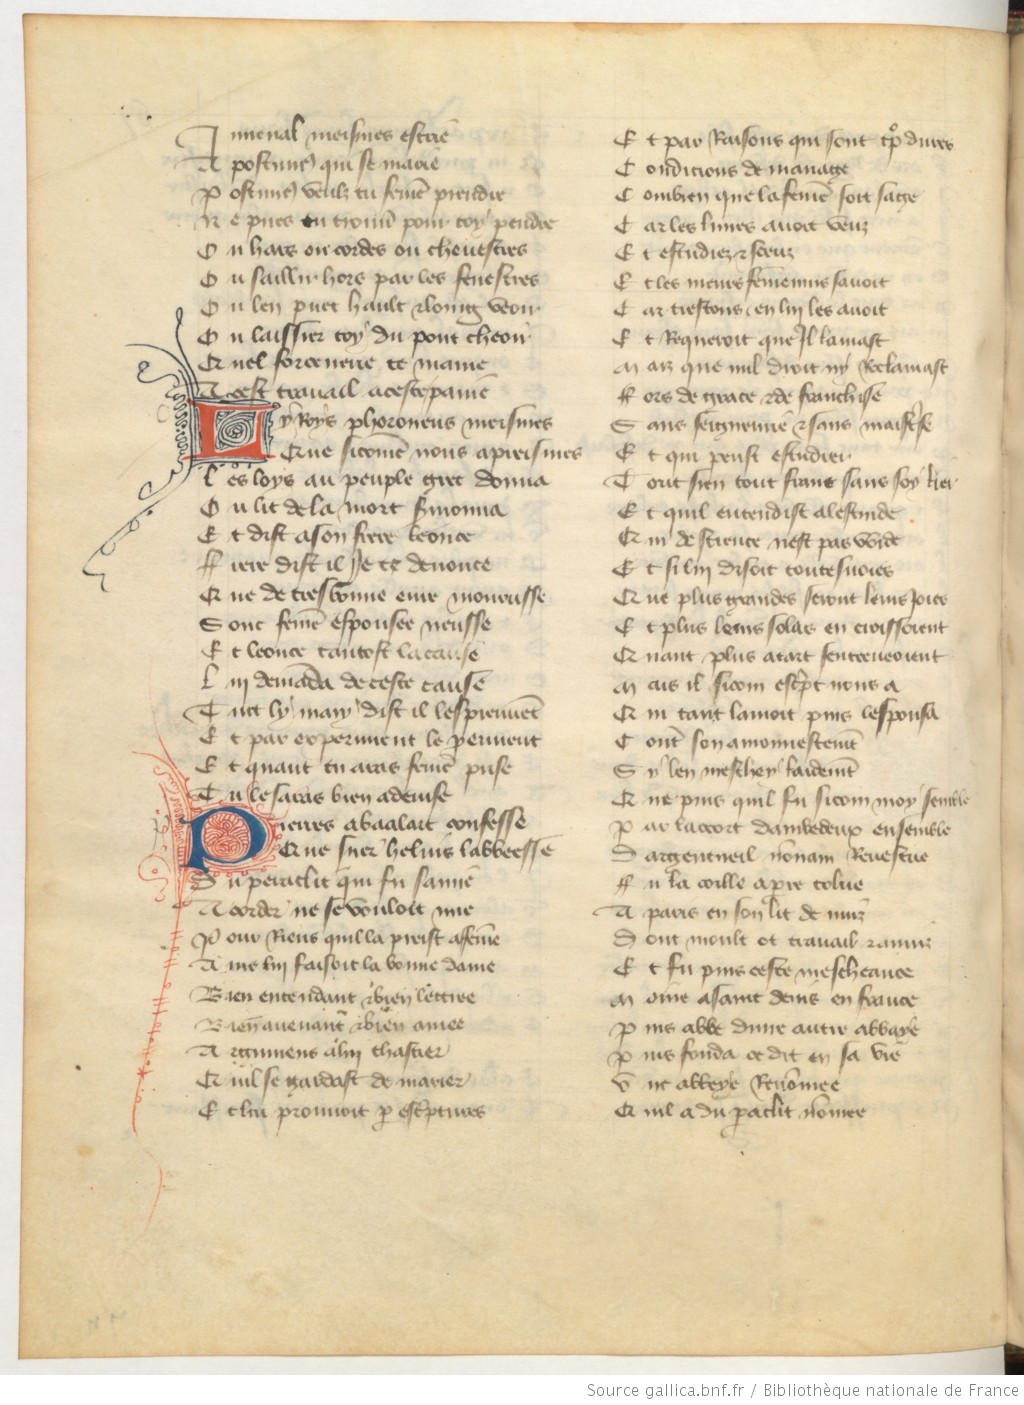 Juuenal meismes escrie
A postunus qui se marie
P ostunus veulz tu feme prendre
N e pues tu trouuer pour toy pendre
O u hars ou cordes ou cheuestres
O u saillir hors par les fenestres
O u len puet hault et loing veoir
O u laissier toy du pont cheoir
Q uel forcenerie te maine
A cest trauail a ceste paine
Ly Roys phoroneus meismes
Que sicome nous apreismes
L es loys au peuple grec donna
O u lit de la mort sermonna
E t dist a son frere leonce
F rere dist il Je te denonce
Q ue de tres bonne eur mourusse
S onc feme espousee neusse
E t leonce tantost la cause
L ui demada de ceste cause
T uit ly mary dist il lespreuuent
E t par experiment le preuuent
E t quant tu aras feme prise
T u le saras bien a deuise
Pierres abaalart confesse
Que suer heluis labbeesse
D u peraclit qui fu samie
A corder ne se vouloit mie
P our Riens quil la preist a feme
A ins lui faisoit la bonne dame
B ien entendant et bien lettree
B ien auenant et bien amee
A rgumens a lui chastier
Q uil se gardast de marier
E t lui prouuoit p escriptures
E t par Raisons qui sont trop dures
C ondicions de mariage
C ombien que la feme soit sage
C ar les liures auoit veuz
E t estudiez et sceuz
E t les meurs femenins sauoit
C ar trestous en lui les auoit
E t Requeroit que Il lamast
M aiz que nul droit ny Reclamast
F ors de grace et de franchise
S ans seigneurie et sans maistrise
E t qui peust estudier
T out sien tout franc sans soy lier
E t quil entendist a lestuide
Q ui de science nest pas vuide
E t si lui disoit toutesuoies
Q ue plus grandes seront leurs joies
E t plus leurs solas en croissoient
Q uant plus a tart sentreueoient
M ais il sicom escript nous a
Q ui tant lamoit puis lespousa
C ontre son amonnestement
S y len meschey laidement
Q ue puis quil fu sicom moy semble
P ar laccort dambedeux ensemble
D argentueil nonnain Reuestue
F u la coille a pierre tolue
A paris en son lit de nuiz
D ont moult ot trauail et anuiz
E t fu puis ceste mescheance
M oine a saint denis en france
P uis abbe dune autre abbaye
P uis fonda ce dit en sa vie
V ne abbeye Renomee
Q uil a du paclit nomee
Source gallica.bnf.fr / Bibliothèque nationale de France